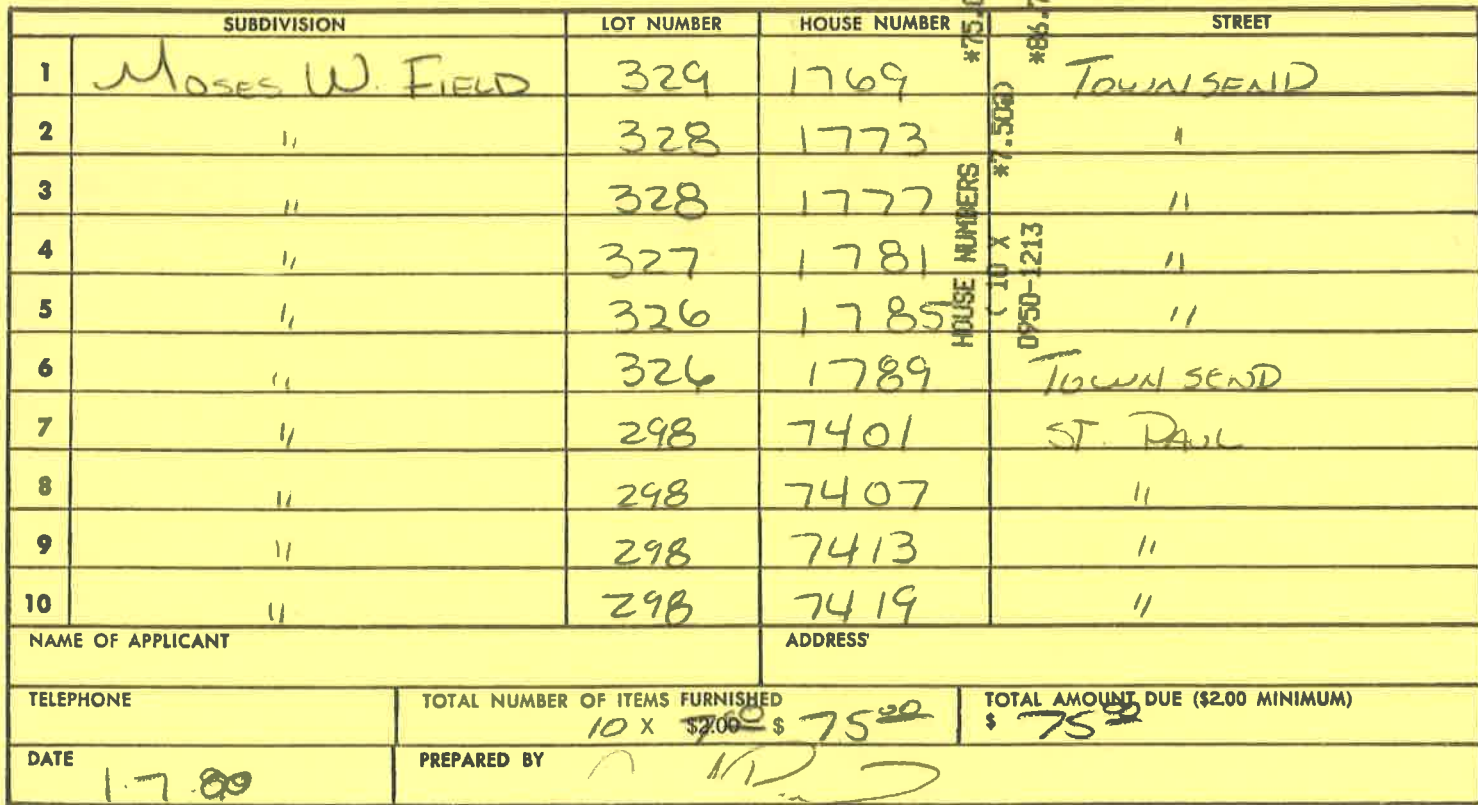 SUBDIVISION LOT NUMBER HOUSE NUMBER STREET
1 MOSES W. FIELD 329 1769 TOWNSEND
2 " 328 1773 "
3 " 328 1777 "
4 " 327 1781 "
5 " 326 1785 "
6 " 326 1789 TOWNSEND
7 " 298 7401 ST. PAUL
8 " 298 7407 "
9 " 298 7413 "
10 " 298 7419 "
HOUSE NUMBERS
( 10 X *7.50@)
D950-1213
NAME OF APPLICANT ADDRESS
TELEPHONE TOTAL NUMBER OF ITEMS FURNISHED TOTAL AMOUNT DUE ($2.00 MINIMUM)
10 X $2.00 $ 75.00 $ 75.00
DATE PREPARED BY
1.7.